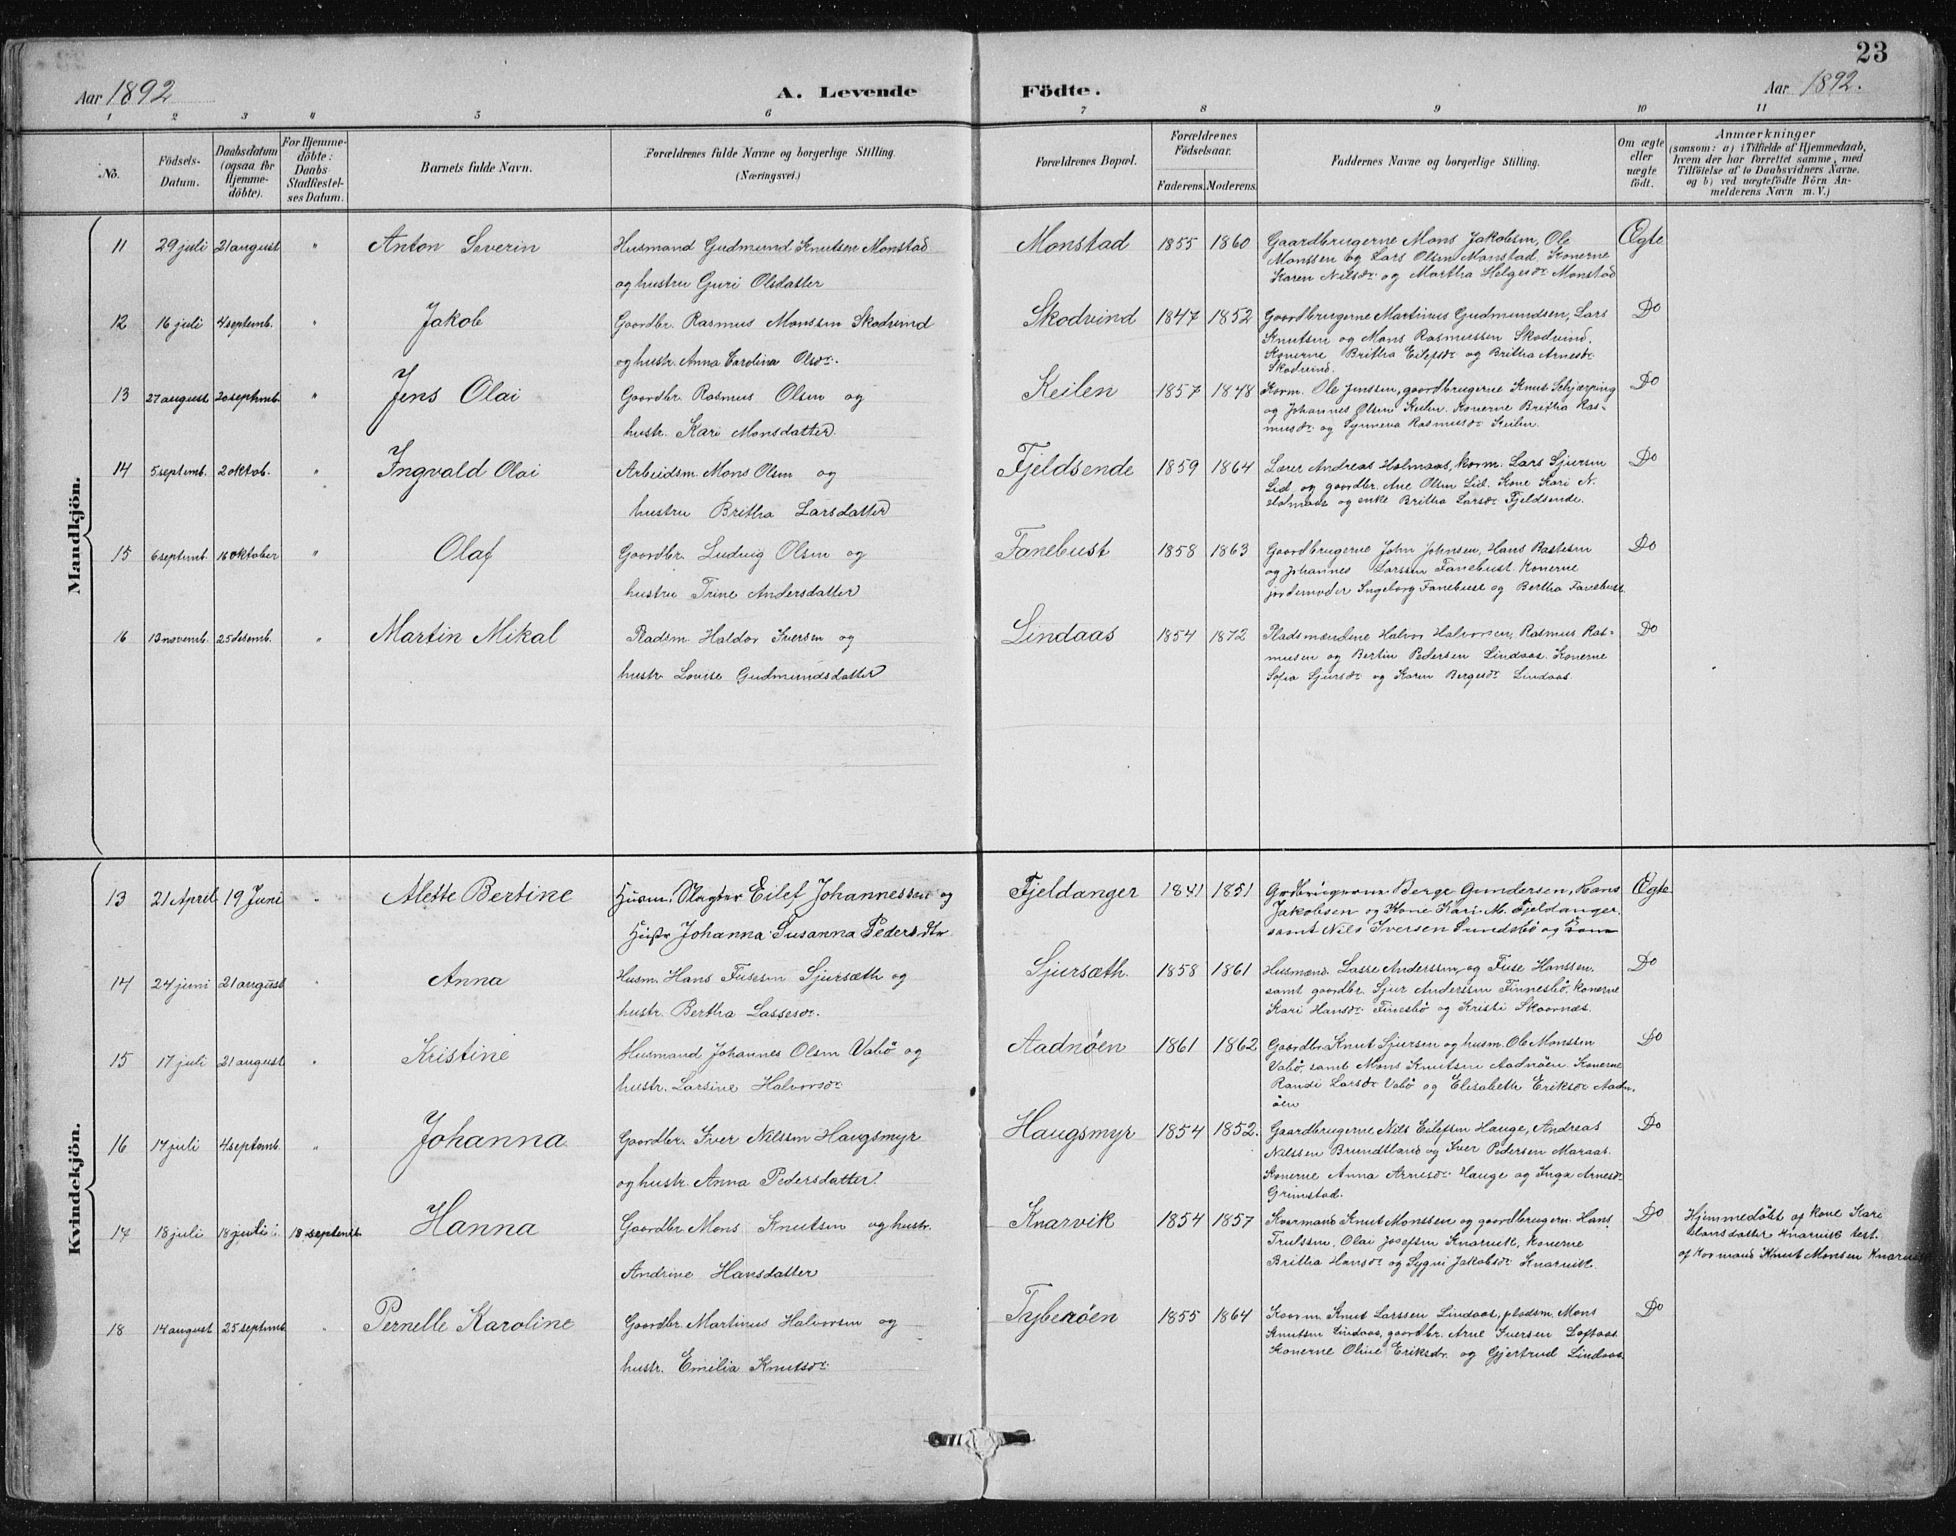 23
Aar 1892
A. Levende Födte.
Aar 1892.
1 2 3 4 5 6 7 8 9 10 11
No.
Födsels-
Datum.
Daabsdatum
(ogsaa for
Hjemme-
döbte).
For Hjemme-
döbte:
Daabs-
Stadfæstel-
ses Datum.
Barnets fulde Navn.
Forældrenes fulde Navne og borgerlige Stilling.
(Næringsvei.)
Forældrenes Bopæl.
Forældrenes
Födselsaar.
Faderens. Moderens.
Faddernes Navne og borgerlige Stilling.
Om ægte
eller
uægte
födt.
Anmærkninger
(saasom: a) i Tilfælde af Hjemmedaab,
hvem der har forrettet samme, med
Tilföielse af to Daabsvidners Navne.
og b) ved uægtefödte Börn An-
melderens Navn m. V.)
Mandkjön.
11 29 juli 21 august " Anton Severin Husmand Gudmund Knutsen Monstad Monstad 1855 1860 Gaardbrugerne Mons Jakobsen, Ole Ægte
og hustru Guri Olsdatter Monssen og Lars Olsen Monstad, Konerne
Karen Nilsdr og Martha Helgesdr Monstad
12 16 juli 4 septemb. " Jakob Gaardbr. Rasmus Monssen Skodvind Skodvind 1847 1852 Gaardbrugerne Martinus Gudmundsen, Lars Do
og hustr. Anna Carolina Olsdr. Knutsen og Mons Rasmussen Skodvind.
Konerne Britha Eilefsdr og Britha Arnesdr
Skodvind.
13 27 august 20 septemb. " Jens Olai Gaardbr. Rasmus Olsen og Keilen 1857 1848 Korm. Ole Jenssen, gaardbrugerne Knut Schjærping Do
hustr. Kari Monsdatter. og Johannes Olsen Keilen. Konerne Britha Ras-
musdr og Synneva Rasmusdr Keilen.
14 5 septemb. 2 oktob. " Ingvald Olai Arbeidsm. Mons Olsen og Fjeldsende 1859 1864 Lærer Andreas Holmaas, korm. Lars Sjursen Do
hustru Britha Larsdatter Lid og gaardbr. Ane Olsen Lid. Kone Kari N.
Holmaas og enke Britha Larsdr Fjeldsende.
15 6 septemb. 16 oktober " Olaf Gaardbr. Ludvig Olsen og Fanebust 1858 1863 Gaardbrugerne John Johnsen, Hans Rastesen Do
hustru Trine Andersdatter og Johannes Larssen Fanebust. Konerne
jordemoder Ingeborg Fanebust og Bertha Fanebust
16 13 novemb. 25 desemb. " Martin Mikal Pladsm. Haldor Iversen og Lindaas 1854 1872 Pladsmændene Halvor Halvorsen, Rasmus Ras- Do
hustr. Louise Gudmundsdatter musen og Bertin Pedersen Lindaas. Konerne
Sofia Sjursdr og Karen Bergesdr Lindaas.
Kvindekjön.
13 21 April 19 Juni " Alette Bertine Husm. Slagter Eilef Johannessen og Fjeldanger 1841 1851 Grdbrugerne Berge Gundersen, Hans Ægte
Hustr Johanna Susanna Pedersdtr Jakobsen og Kone Kari M. Fjeldanger.
samt Nils Iversen Sundsbö og
14 24 juni 21 august " Anna Husm. Hans Fusesen Sjursæth og Sjursæth. 1858 1861 Husmænd. Lasse Anderssen og Fuse Hanssen. Do
hustr. Bertha Lassesdr. samt gaardbr. Sjur Anderssen Finnesbö. Konerne
Kari Hansdr Finesbö og Kristi Skaornæs.
15 17 juli 21 august " Kristine Husmand Johannes Olsen Vabö og Aadnöen 1861 1862 Gaardbr. Knut Sjursen og husm. Ole Monssen Do
hustr. Larsine Halvorsdr Vabö, samt Mons Knutsen Aadnöen. Konerne
Randi Larsdr Vabö og Elisabeth Eriksdr Aadn-
öen
16 17 juli 4 septemb. " Johanna Gaardbr. Iver Nilssen Haugsmyr Haugsmyr 1854 1852. Gaardbrugerne Nils Eilefsen Hauge, Andreas Do
og hustr. Anna Pedersdatter. Nilssen Brundtland og Iver Pedersen Maraas.
Konerne Anna Arnesdr Hauge og Inga Arnesdr
Grimstad.
17 18 juli 18 juli 18 septemb. Hanna Gaardbr. Mons Knutsen og hustr. Knarvik 1854 1857 Kormand Knut Monssen og gaardbrugern. Hans Do Hjemmedöbt af kone Kari
Andrine Hansdatter Trulssen, Olai Josefsen Knarvik, Konerne Hansdatter Knarvik test.
Britha Hansdr og Sygni Jakobsdr Knarvik. af Kormand Knut Monsen Knarvik
18 14 august 25 septemb. " Pernelle Karoline Gaardbr. Martinus Halvorsen og Tybenöen 1855 1864 Korm. Knut Larssen Lindaas, pladsm. Mons Do
hustr. Emilia Knutsdr Knutsen Lindaas, gaardbr. Arne Iversen Loftaas
Konerne Oline Eriksdr. og Gjertrud Lindaas.